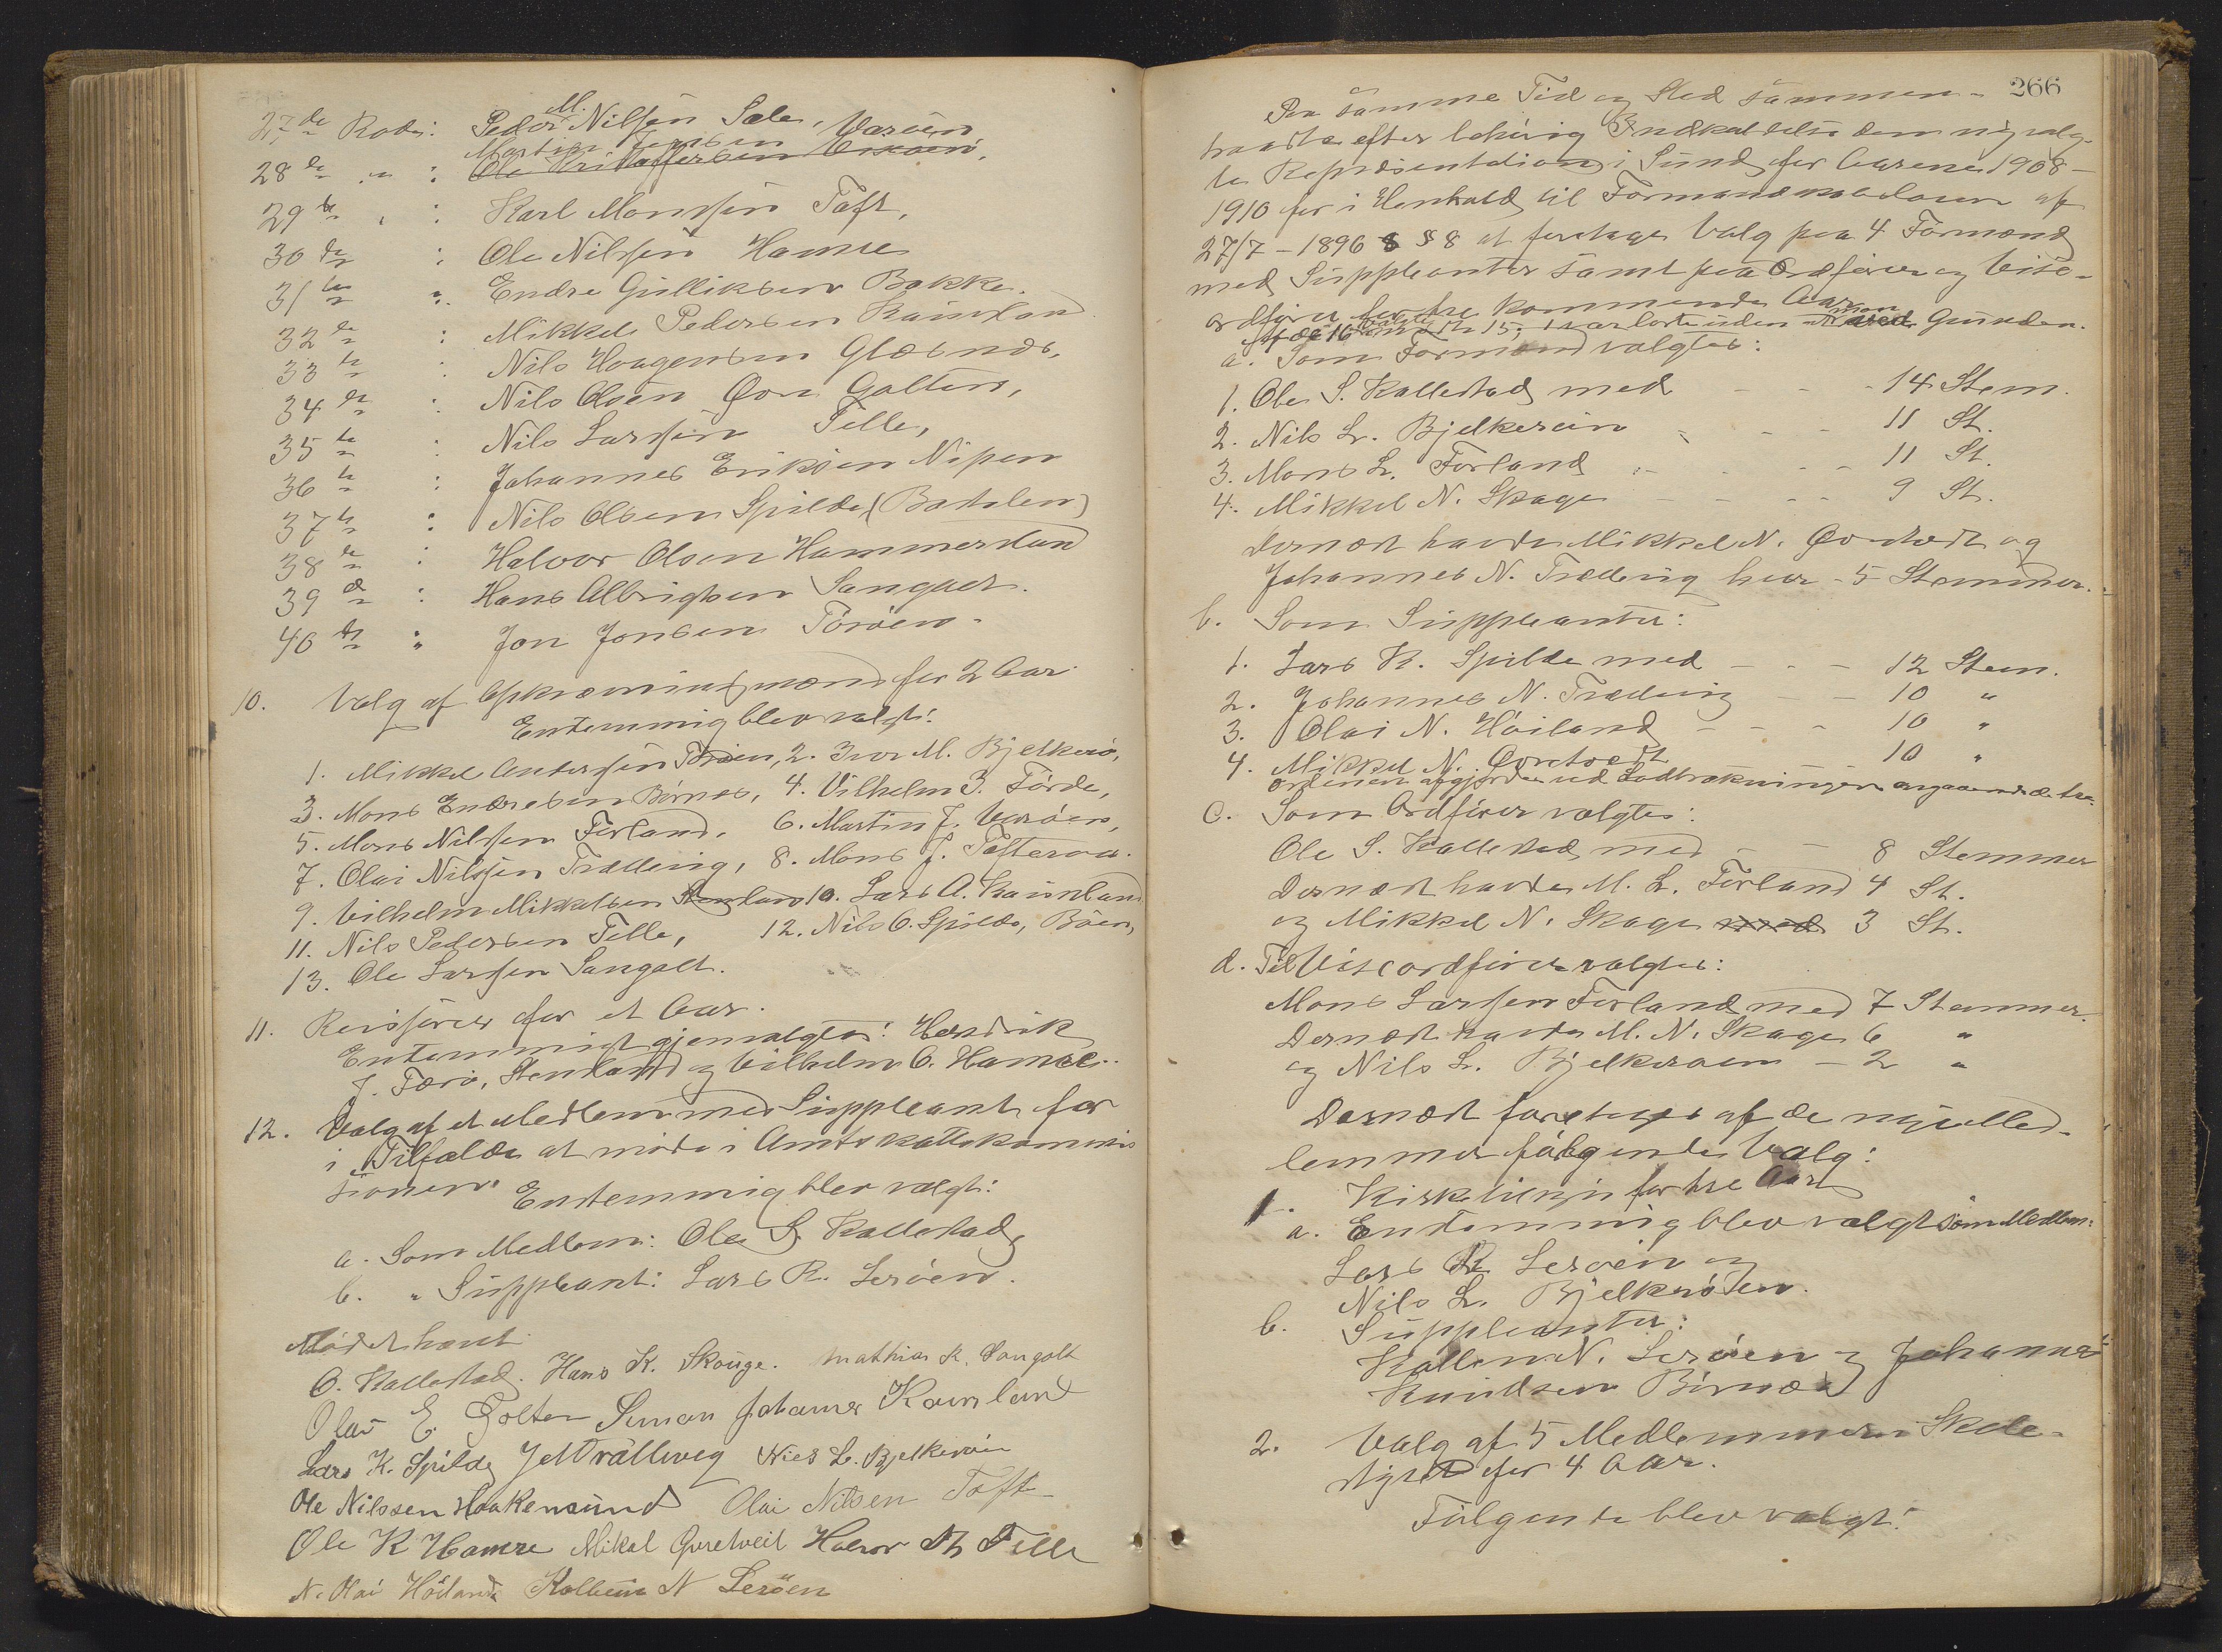 27de Rode: Peder M. Nilssen Sæle,
Morten Jensen Vardøen
28de " : Ole Kristoffersen
29de " : Karl Monssen Toft,
30de : Ole Nilssen Hamre
31te " Endre Gulliksen Bakke.
32de : Mikkel Pedersen Kausland
33te : Nils Haagensen Glæsnes,
34de : Nils Olsen Øvre Golten,
35te : Nils Larssen Telle,
36te : Johannes Eriksen Nipen
37te : Nils Olsen Spilde (Bakelen)
38te : Halvor Olsen Hammersland
39de : Hans Albrigtsen Sangolt.
40de " Jon Jonsen Toröen.
10. Valg af Opkrævningsmænd for 2 Aar
Enstemmig blev valgt:
1. Mikkel Anderssen Toröen, 2. Ivar M. Bjelkerö,
3. Mons Endresen Börnes, 4. Vilhelm J. Förde,
5. Mons Nilssen Forland, 6. Martin J. Varöen,
7. Olai Nilssen Trælleviq, 8. Mons J. Tofterøen.
9. Vilhelm Mikkelsen Stenland 10. Lars A. Kausland
11. Nils Pedersen Telle, 12. Nils O. Spilde, Böen,
13. Ole Larssen Sangolt.
11. Revisorer for et Aar.
Enstemmigt gjenvalgtes: Hendrik
J. Færö, Stenland og Vilhelm O. Hamre.
12. Valg af et Medlem med Suppleant for
i Tilfælde at möde i Amtsskattekommis
sionen. Enstemmig blev valgt:
a. Som Medlem: Ole S. Kallestad,
b. " Suppleant: Lars R. Leröen.
Mödet hævet
O. Kallestad. Hans K. Skouge. Mathias K. Sangolt
Olai E. Golten Simon Johannes Kausland
Lars K. Spilde J N Trælleveg Nils L. Bjelkeröen
Ole Nilssen Haakensund Olai Nilsen Toft
Ole K Hamre Mikal Qvretveit Halvor Th Telle
N. Olai Höiland Kolbein N Leröen
266
Paa samme Tid og Sted sammen-
traadte efter lovlig Indkaldelse den nyvalg-
te Repræsentation i Sund for Aarene 1908-
1910 for i Henhold til Formandskabsloven af
27/7-1896 § 8 at foretage Valg paa 4 Formænd
med Suppleanter samt paa Ordförer og Vise-
ordförer for tre kommende Aar.
a. Som Formænd valgtes:
1. Ole S. Kallestad med - - - 14 Stem.
2. Nils L. Bjelkeröen - - - 11 St.
3. Mons L. Forland - - - 11 St.
4. Mikkel N. Skage - - - 9 St.
Dernæst havde Mikkel N. Qvretvedt og
Johannes N. Trælleviq hver - 5 Stemmer.
b. Som Suppleanter:
1. Lars K. Spilde med - - - 12 Stem.
2. Johannes N. Trælleviq - - 10 "
3. Olai N. Höiland - - - 10 "
4. Mikkel N. Qvretvedt 10 "
Ordenen afgjordes ved Lodtrækningen angaaende de tre.
c. Som Ordförer valgtes:
Ole S. Kallestad med - - 8 Stemmer
Dernæst havde M. L. Forland 4 St.
og Mikkel N. Skage med 3 St.
d. Til Viseordförer valgtes:
Mons Larssen Forland med 7 Stemmer.
Dernæst havde M. N. Skage 6 "
og Nils L. Bjelkeröen - 2 "
Dernæst foretoges af de nye Med-
lemmer fölgende Valg:
1. Kirketilsyn for tre Aar
a. Enstemmig blev valgt som Medlem:
Lars R. Leröen og
Nils L. Bjelkeröen.
b. Suppleanter:
Kolben N. Leröen og Johannes
Knudsen Börnes
2. Valg af 5 Medlemmer i Skole-
styret for 4 Aar.
Fölgende blev valgt: